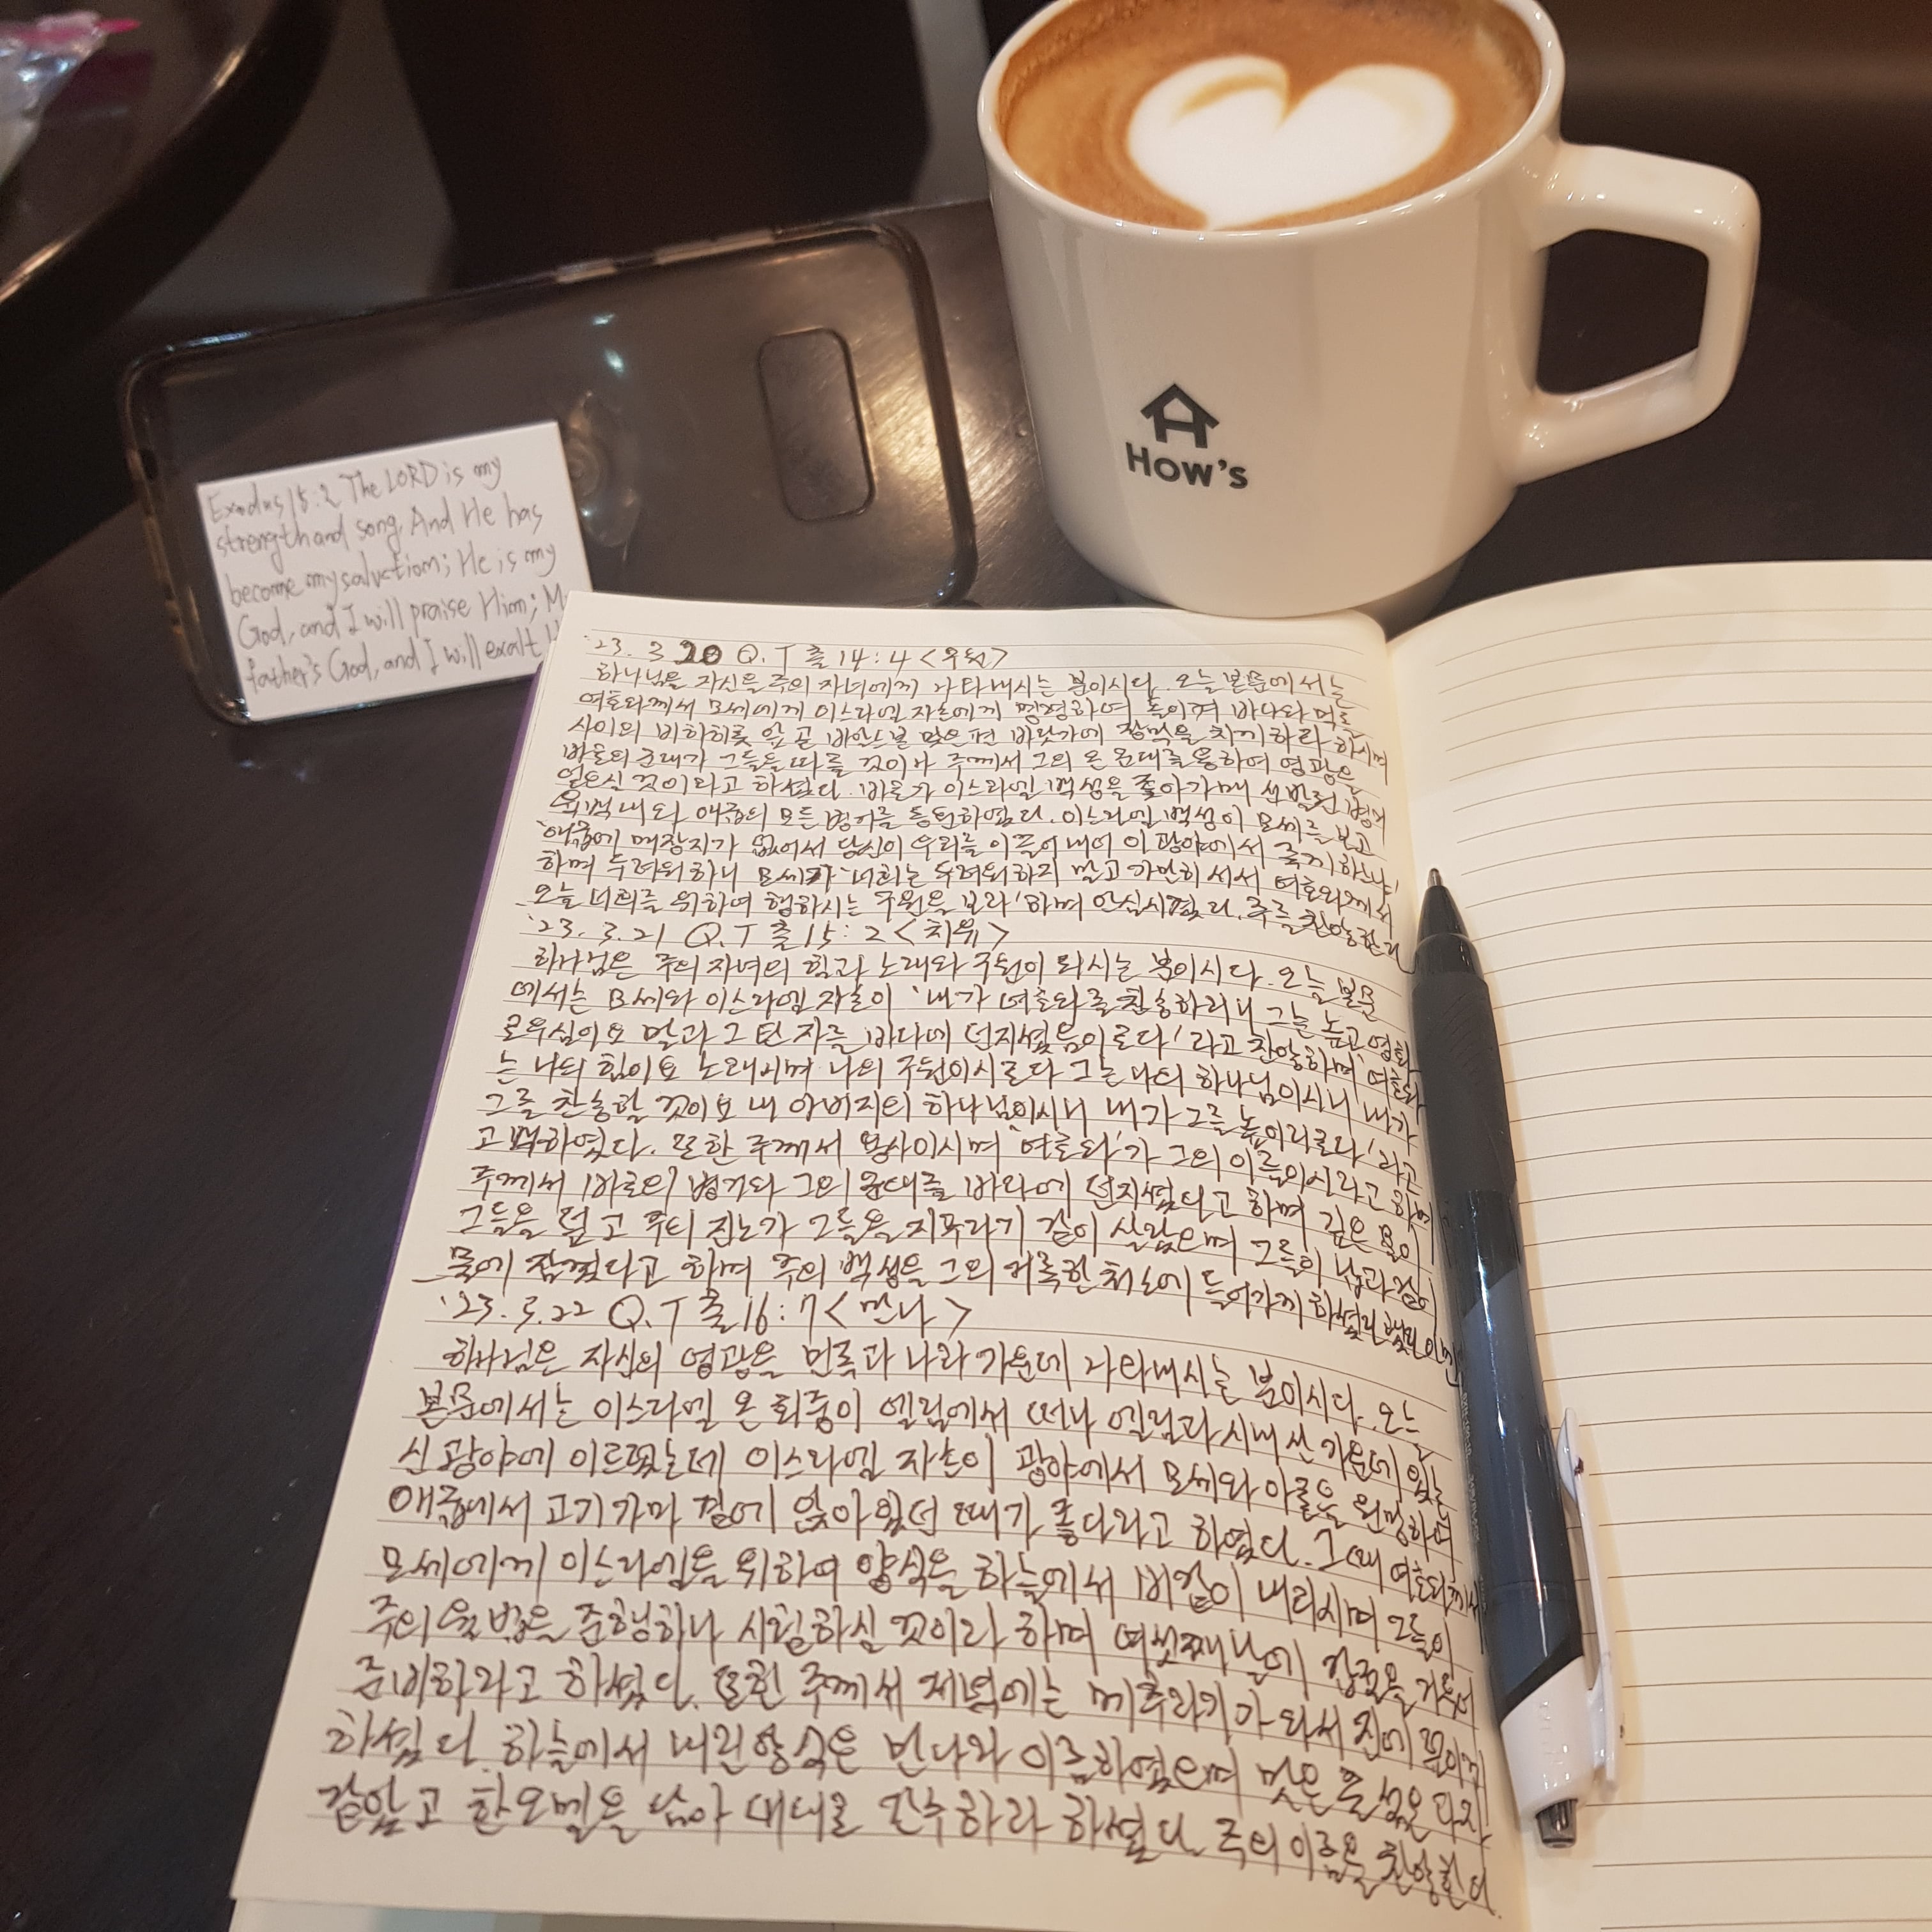 How's
Exodus 15:2 The LORD is my
strength and song, And He has
become my salvation; He is my
God, and I will praise Him; M
father's God, and I will exalt H
'23. 3 20 Q.T 출 14:4 <구원>
하나님은 자신을 주의 자녀에게 나타내시는 분이시다. 오늘 본문에서는
여호와께서 모세에게 이스라엘 자손에게 명령하여 돌이켜 바다와 믹돌
사이의 비하히롯 앞 곧 바알스본 맞은편 바닷가에 장막을 치게 하라 하시며
바로의 군대가 그들을 따를 것이나 주께서 그의 온 군대로 말미암아 영광을
얻으실 것이라고 하셨다. 바로가 이스라엘 백성을 쫓아가매 선발된 병거
육백대와 애굽의 모든 병거를 동원하였다. 이스라엘 백성이 모세를 보고
'애굽에 매장지가 없어서 당신이 우리를 이끌어 내어 이 광야에서 죽게 하느냐'
하며 두려워하니 모세가 '너희는 두려워하지 말고 가만히 서서 여호와께서
오늘 너희를 위하여 행하시는 구원을 보라' 하며 안심시켰다. 주를 찬양한다
'23. 3.21 Q.T 출 15:2 <치유>
하나님은 주의 자녀의 힘과 노래와 구원이 되시는 분이시다. 오늘 본문
에서는 모세와 이스라엘 자손이 '내가 여호와를 찬송하리니 그는 높고 영화
로우심이요 말과 그 탄 자를 바다에 던지셨음이로다' 라고 찬양하며 '여호와
는 나의 힘이요 노래시며 나의 구원이시로다 그는 나의 하나님이시니 내가
그를 찬송할 것이요 내 아버지의 하나님이시니 내가 그를 높이리로다' 라고
고백하였다. 또한 주께서 용사이시며 '여호와'가 그의 이름이시라고 하며
주께서 바로의 병거와 그의 군대를 바다에 던지셨다고 하며 깊은 물이
그들을 덮고 주의 진노가 그들을 지푸라기 같이 살랐으며 그들이 납과 같이
물에 잠겼다고 하며 주의 백성을 그의 거룩한 처소에 들어가게 하셨다
'23. 3.22 Q.T 출 16:7 <만나>
하나님은 자신의 영광을 민족과 나라 가운데 나타내시는 분이시다. 오늘
본문에서는 이스라엘 온 회중이 엘림에서 떠나 엘림과 시내 산 가운데 있는
신 광야에 이르렀는데 이스라엘 자손이 광야에서 모세와 아론을 원망하며
애굽에서 고기 가마 곁에 앉아 있던 때가 좋다라고 하였다. 그 때 여호와께서
모세에게 이스라엘을 위하여 양식을 하늘에서 비같이 내리시며 그들이
주의 율법을 준행하나 시험하실 것이라 하며 여섯째 날에 갑절을 거두어
준비하라고 하셨다. 또한 주께서 저녁에는 메추라기가 와서 진에 덮이게
하셨다. 하늘에서 내린 양식은 만나라 이름하였으며 맛은 꿀 섞은 과자
같았고 한 오멜을 담아 대대로 간수하라 하셨다. 주의 이름을 찬양한다.